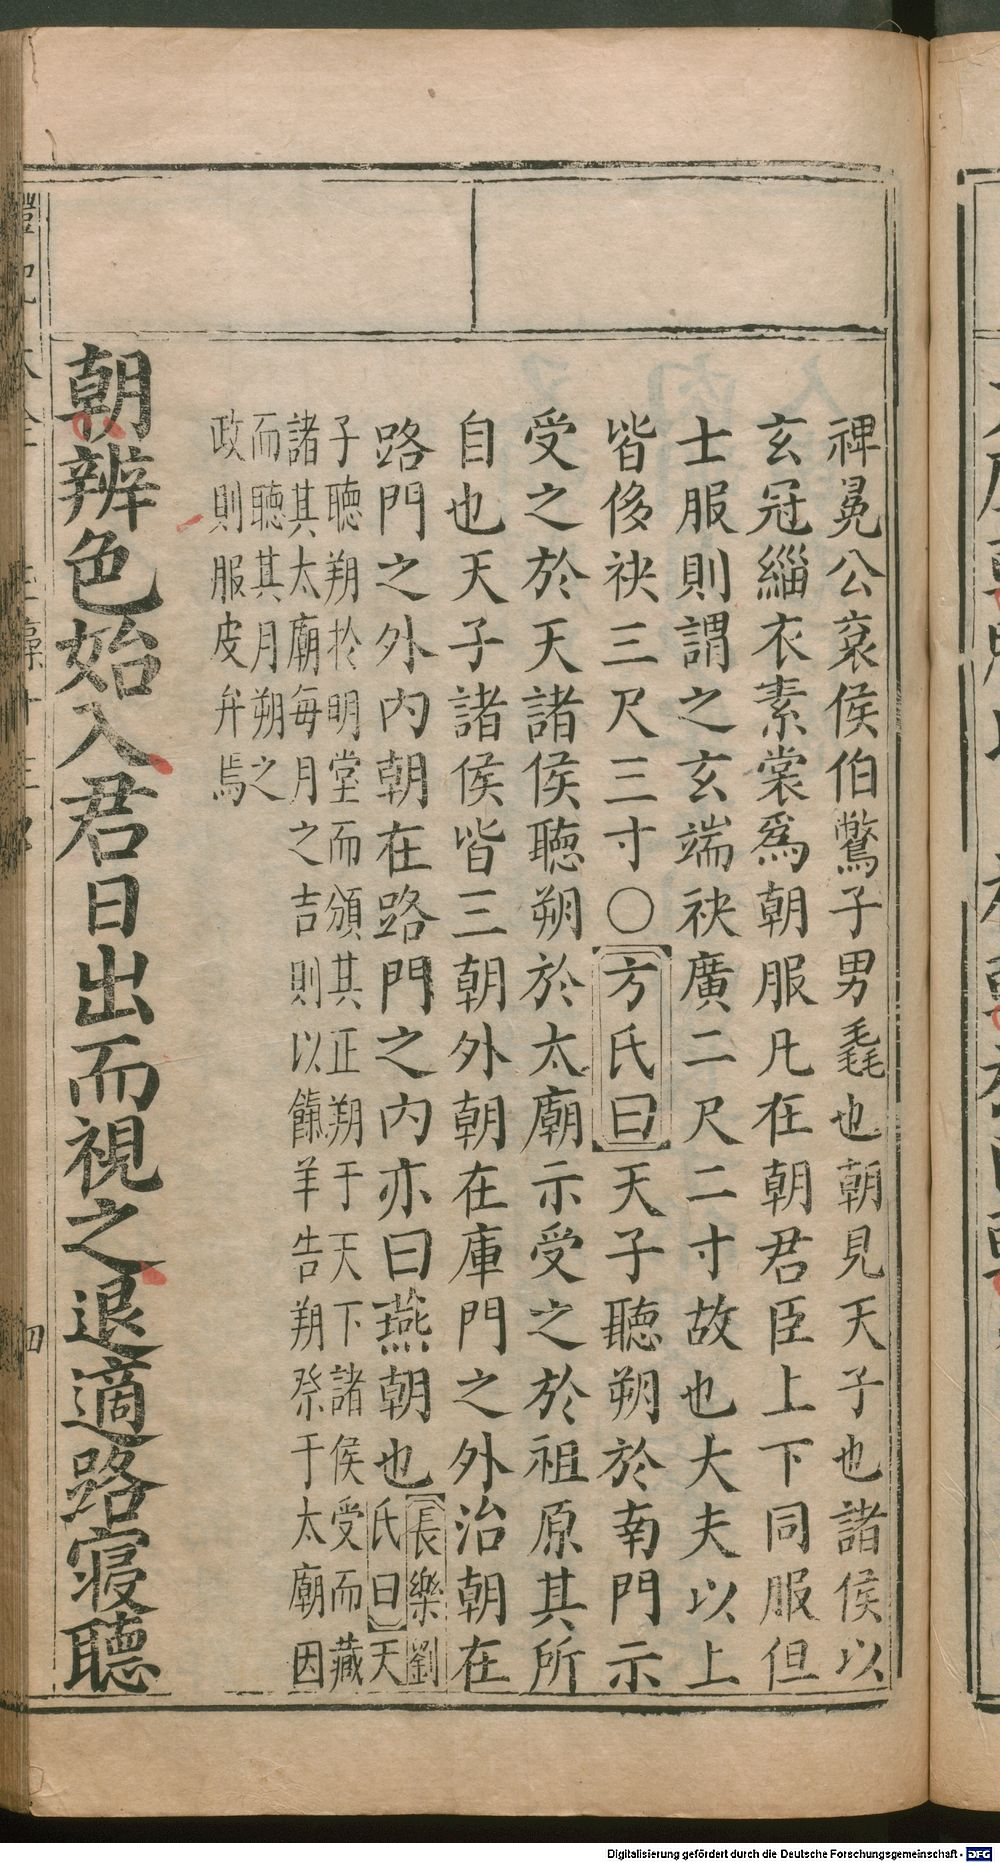 裨冕公衮侯伯鷩子男毳也朝見天子也諸侯以
玄冠緇衣素裳爲朝服凡在朝君臣上下同服但
士服則謂之玄端袂廣二尺二寸故也大夫以上
皆侈袂三尺三寸○方氏曰天子聽朔於南門示
受之於天諸侯聽朔於太廟示受之於祖原其所
自也天子諸侯皆三朝外朝在庫門之外治朝在
路門之外內朝在路門之內亦曰燕朝也長樂劉
氏曰天
子聽朔於明堂而頒其正朔于天下諸侯受而藏
諸其太廟每月之吉則以餼羊告朔祭于太廟因
而聽其月朔之
政則服皮弁焉
朝辨色始入君日出而視之退適路寢聽
四
Digitalisierung gefördert durch die Deutsche Forschungsgemeinschaft - DFG